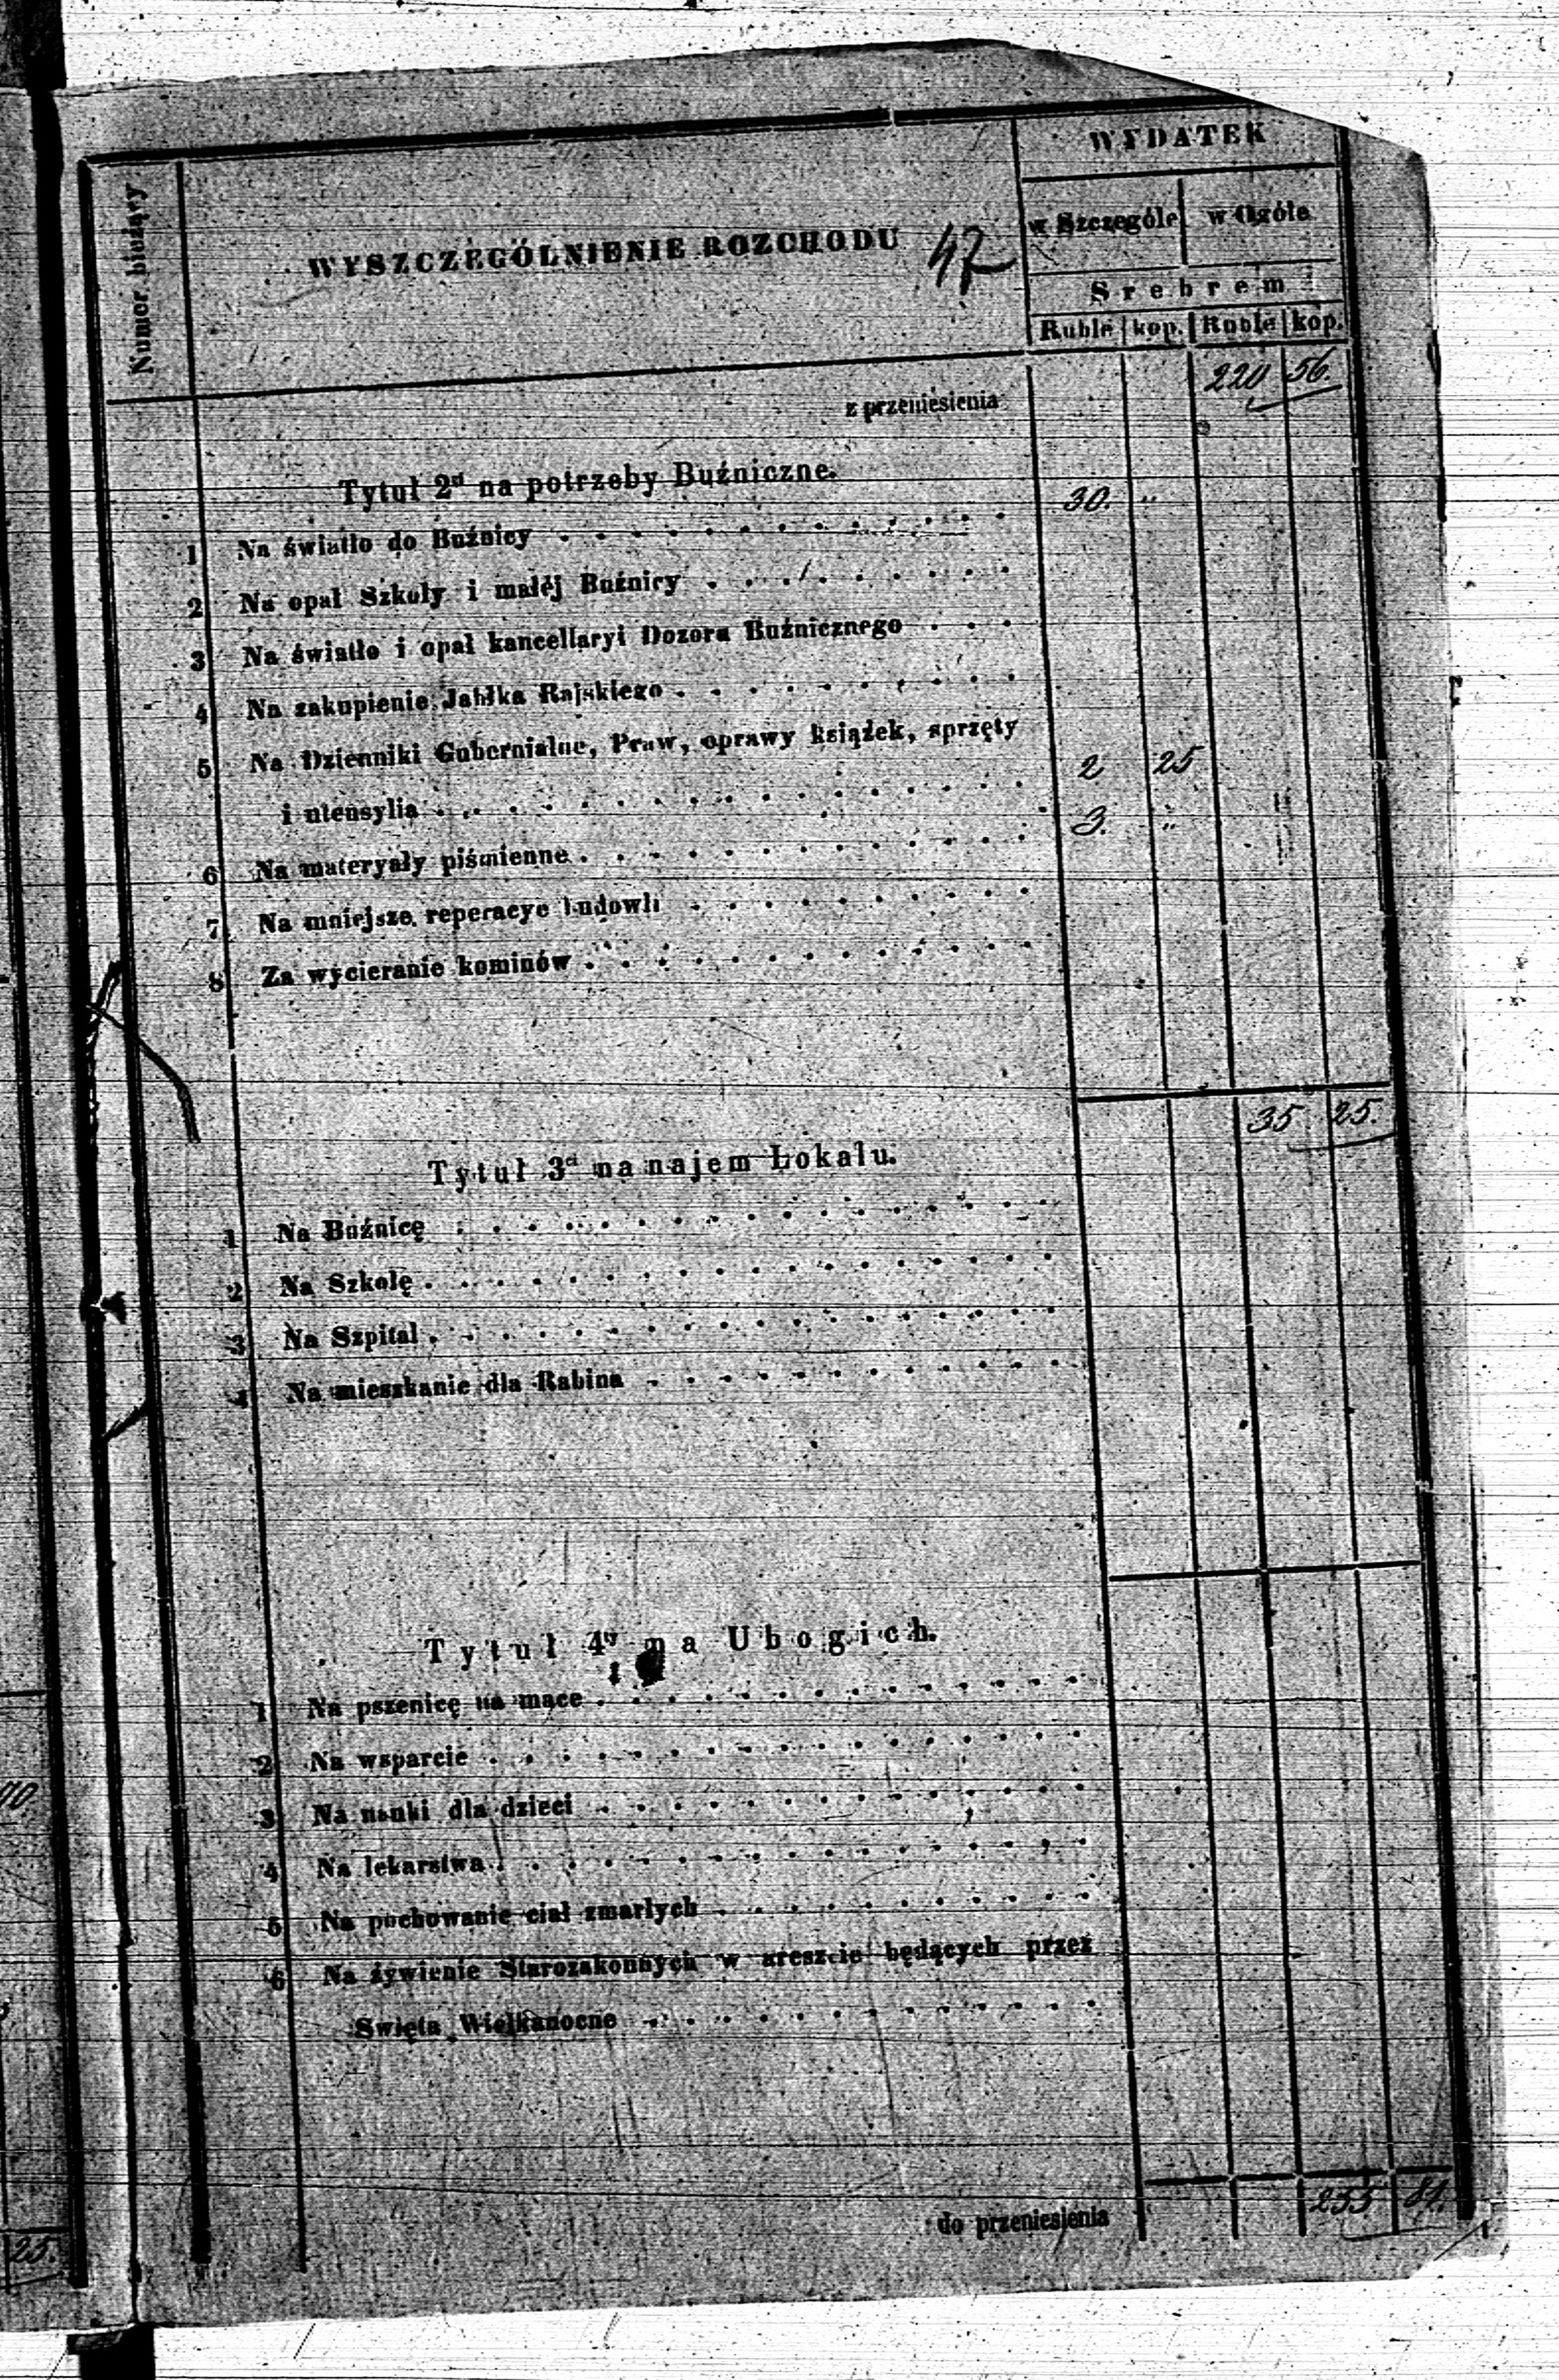 WYDATEK
Numer bieżący
WYSZCZEGÓLNIENIE ROZCHODU
47
w Szczególe w Ogóle
Srebrem
Ruble kop. Ruble kop.
z przeniesienia 220 56.
Tytuł 2gi na potrzeby Buźniczne.
1 Na światło do Buźnicy . . . . . . . . . . . . 30. "
2 Na opał Szkoły i małéj Buźnicy . . . . . . . . .
3 Na światło i opał kancellaryi Dozoru Buźnicznego . . .
4 Na zakupienie Jabłka Rajskiego . . . . . . . . . .
5 Na Dzienniki Gubernialne, Praw, oprawy książek, sprzęty
i utensylia . . . . . . . . . . . . . . . . 2 25
6 Na materyały piśmienne . . . . . . . . . . . . 3. "
7 Na mniejsze reperacye budowli . . . . . . . . . .
8 Za wycieranie kominów . . . . . . . . . . . . .
35 25.
Tytuł 3ci na najem Lokalu.
1 Na Buźnicę . . . . . . . . . . . . . . . .
2 Na Szkołę . . . . . . . . . . . . . . . . .
3 Na Szpital . . . . . . . . . . . . . . . . .
4 Na mieszkanie dla Rabina . . . . . . . . . . . .
Tytuł 4ty na Ubogich.
1 Na pszenicę na mace . . . . . . . . . . . . . .
2 Na wsparcie . . . . . . . . . . . . . . . . .
3 Na nauki dla dzieci . . . . . . . . . . . . . .
4 Na lekarstwa . . . . . . . . . . . . . . . . .
5 Na pochowanie ciał zmarłych . . . . . . . . . . .
6 Na żywienie Starozakonnych w areszcie będących przez
Święta Wielkanocne . . . . . . . . . . . . .
do przeniesienia 255 81.
25.